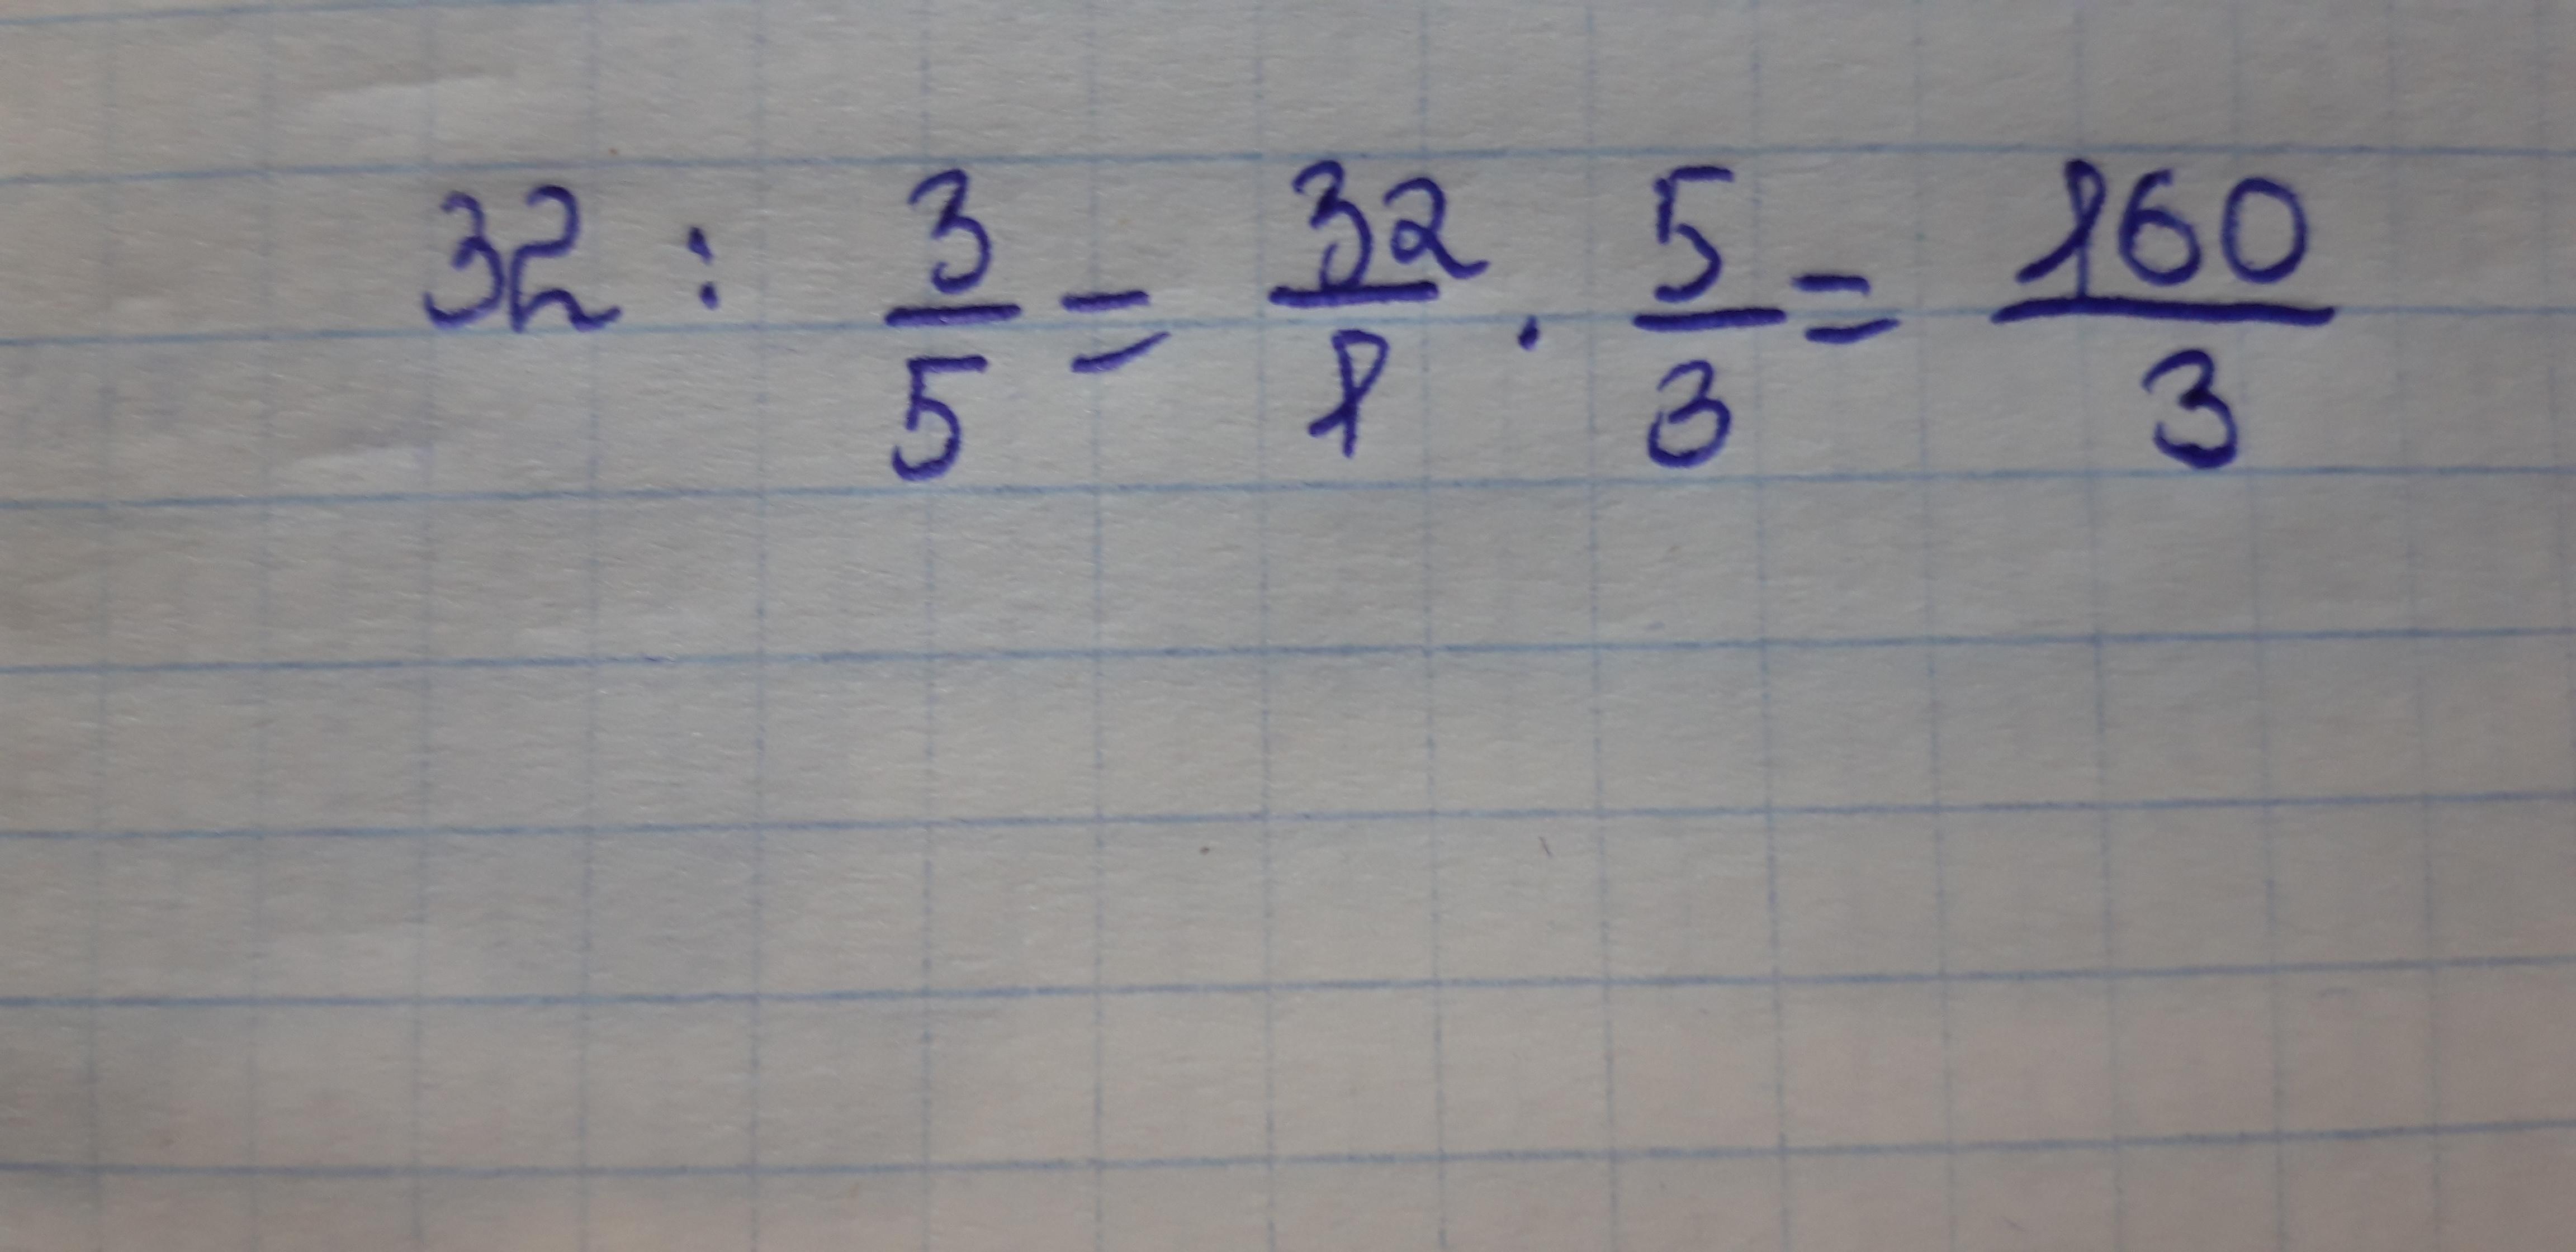 32 : 3/5 = 32/1 · 5/3 = 160/3